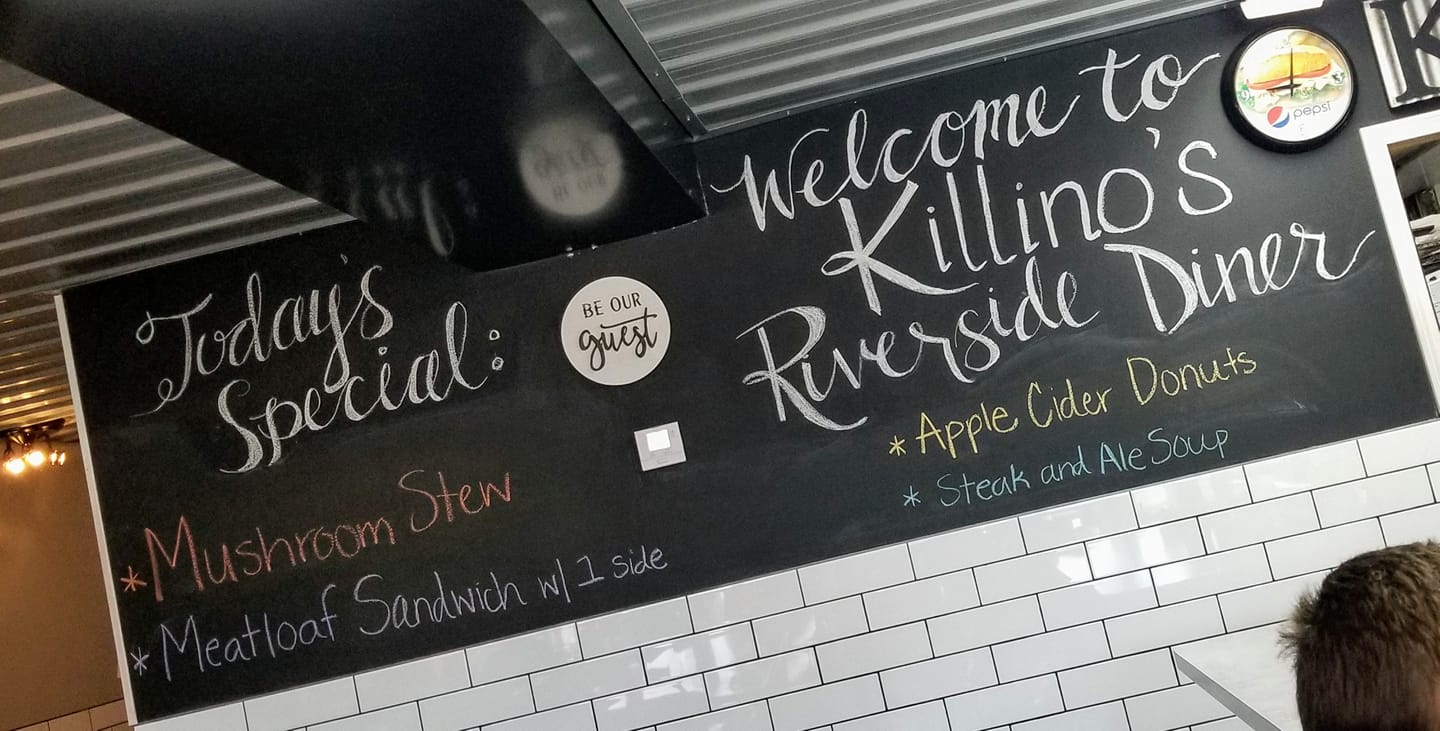 Today's
Special:
*Mushroom Stew
*Meatloaf Sandwich w/ 1 side
BE OUR
guest
Welcome to
Killino's
Riverside Diner
*Apple Cider Donuts
* Steak and Ale Soup
pepsi
K